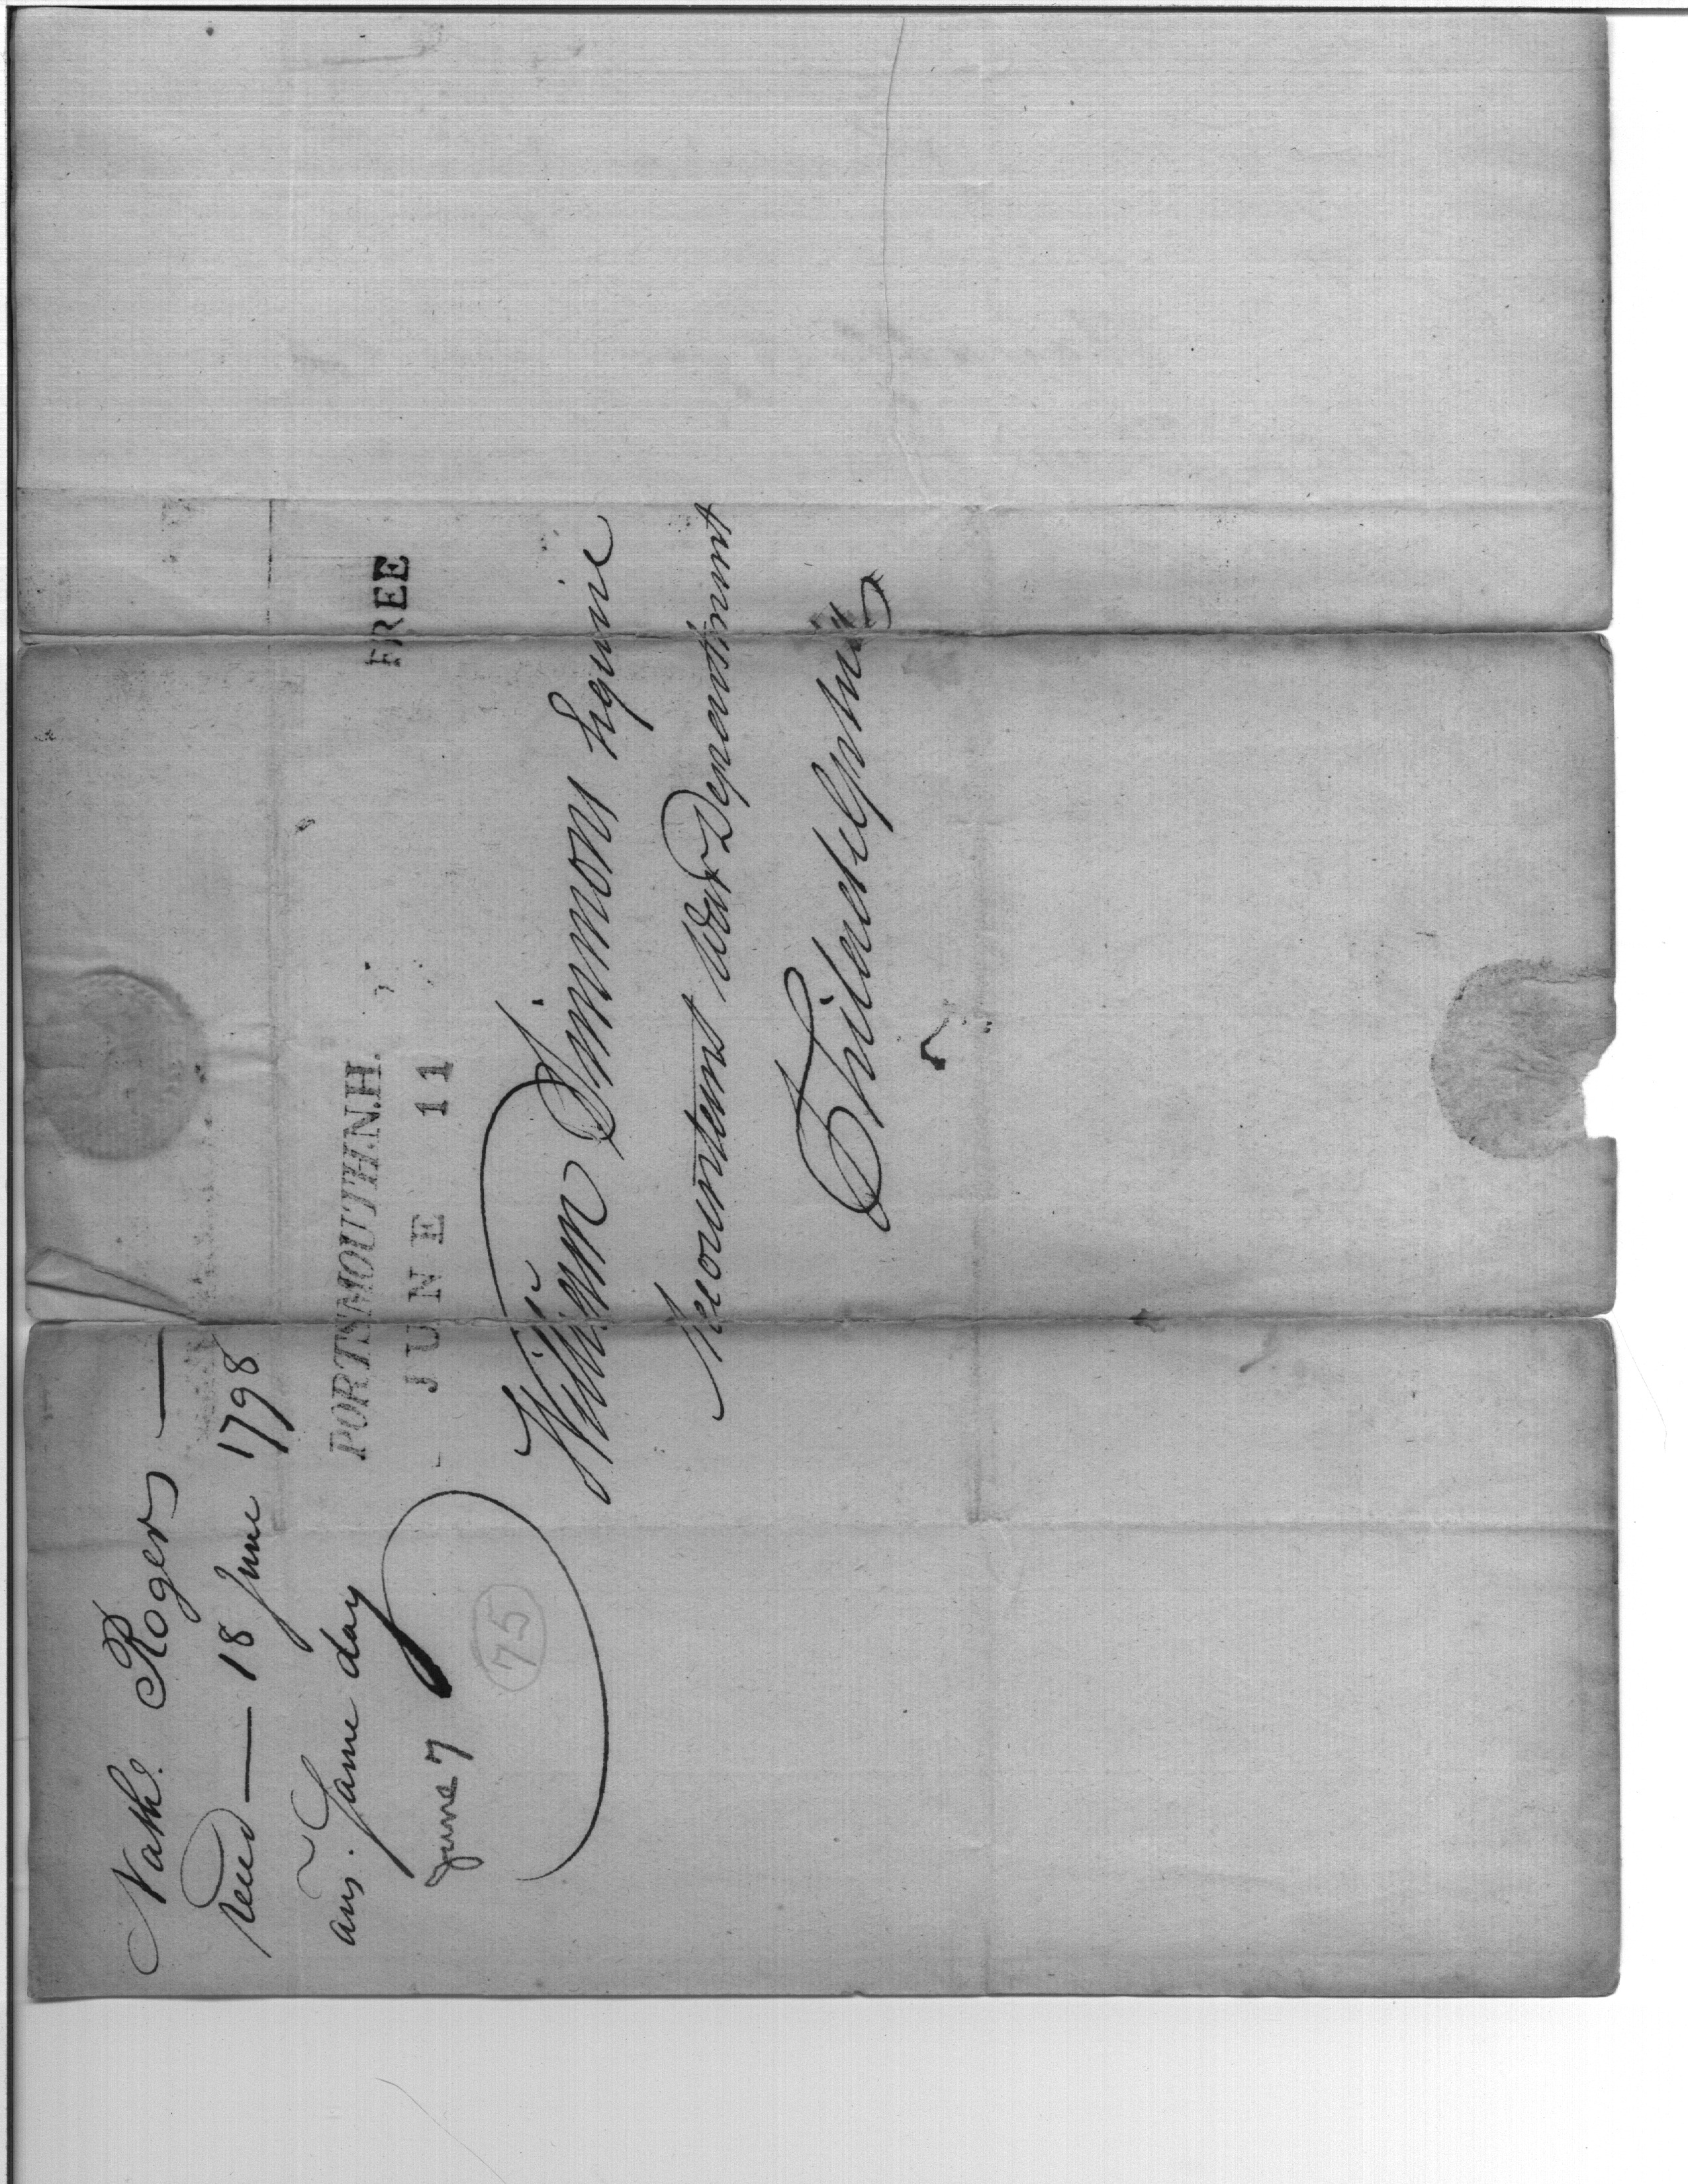 Nathl. Rogers —
Recd — 18 June 1798
ans. Same day
June 7
75
PORTSMOUTH.N.H.
JUNE 11
FREE
William Simmons Esquire
Accountant War Department
Philadelphia